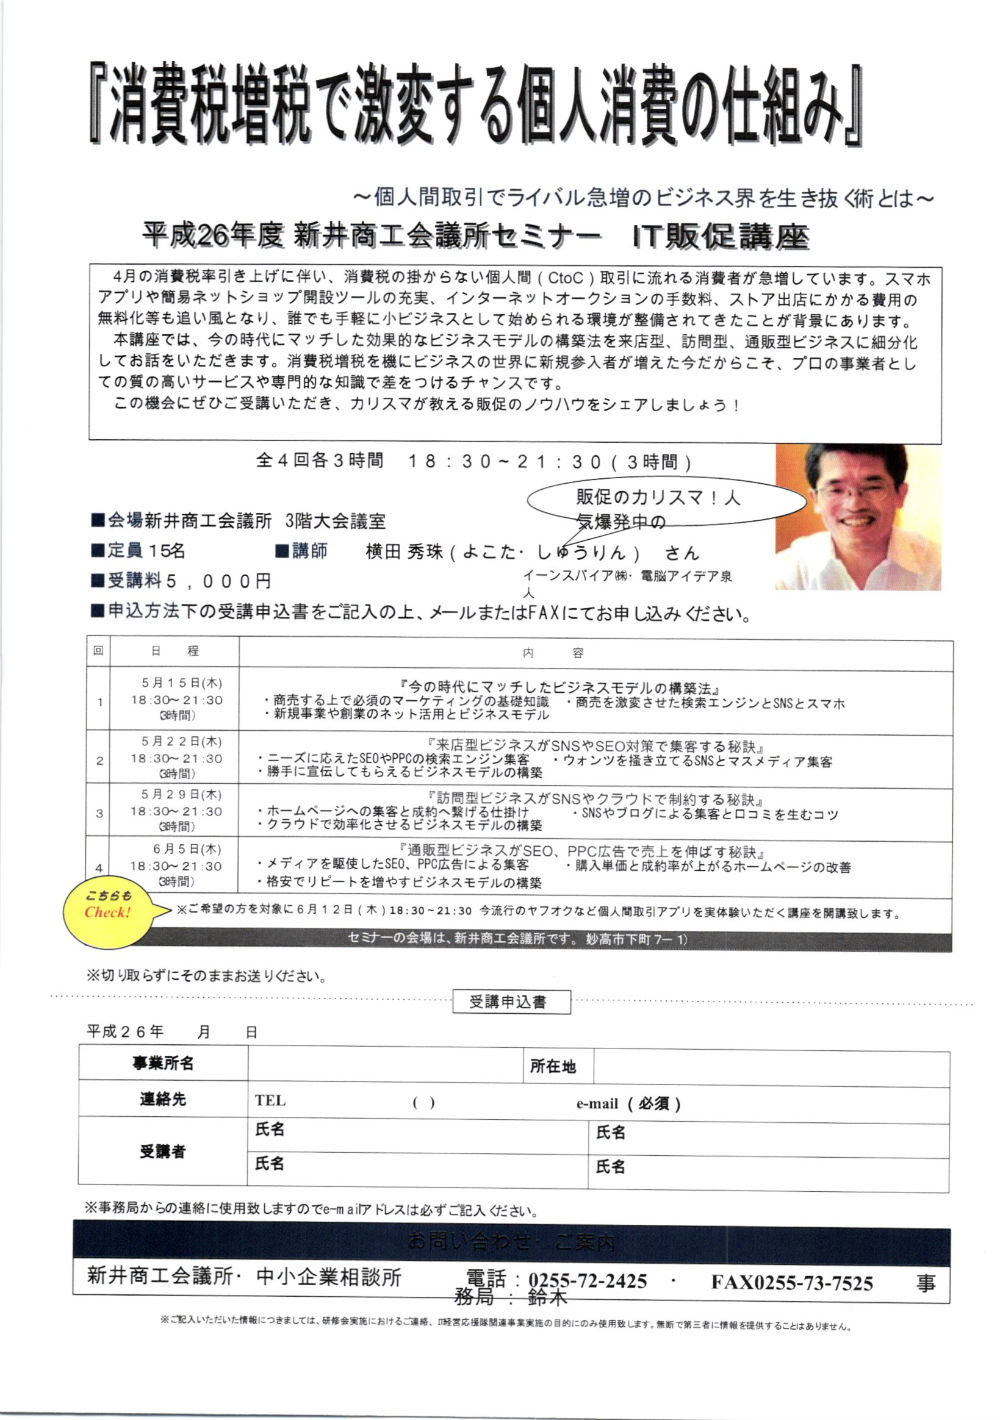 『消費税増税で激変する個人消費の仕組み』
～個人間取引でライバル急増のビジネス界を生き抜く術とは～
平成26年度 新井商工会議所セミナー　IT販促講座
4月の消費税率引き上げに伴い、消費税の掛からない個人間（CtoC）取引に流れる消費者が急増しています。スマホ
アプリや簡易ネットショップ開設ツールの充実、インターネットオークションの手数料、ストア出店にかかる費用の
無料化等も追い風となり、誰でも手軽に小ビジネスとして始められる環境が整備されてきたことが背景にあります。
本講座では、今の時代にマッチした効果的なビジネスモデルの構築法を来店型、訪問型、通販型ビジネスに細分化
してお話をいただきます。消費税増税を機にビジネスの世界に新規参入者が増えた今だからこそ、プロの事業者とし
ての質の高いサービスや専門的な知識で差をつけるチャンスです。
この機会にぜひご受講いただき、カリスマが教える販促のノウハウをシェアしましょう！
全４回各３時間　１８：３０～２１：３０（３時間）
販促のカリスマ！人
気爆発中の
■会場新井商工会議所　3階大会議室
■定員１５名　■講師　横田 秀珠（よこた・しゅうりん）　さん
■受講料５，０００円　イーンスパイア㈱・電脳アイデア泉
人
■申込方法下の受講申込書をご記入の上、メールまたはFAXにてお申し込みください。
回　日　程　内　容
5月15日(木)　『今の時代にマッチしたビジネスモデルの構築法』
1　18:30～21:30　・商売する上で必須のマーケティングの基礎知識　・商売を激変させた検索エンジンとSNSとスマホ
(3時間)　・新規事業や創業のネット活用とビジネスモデル
5月22日(木)　『来店型ビジネスがSNSやSEO対策で集客する秘訣』
2　18:30～21:30　・ニーズに応えたSEOやPPCの検索エンジン集客　・ウォンツを掻き立てるSNSとマスメディア集客
(3時間)　・勝手に宣伝してもらえるビジネスモデルの構築
5月29日(木)　『訪問型ビジネスがSNSやクラウドで制約する秘訣』
3　18:30～21:30　・ホームページへの集客と成約へ繋げる仕掛け　・SNSやブログによる集客と口コミを生むコツ
(3時間)　・クラウドで効率化させるビジネスモデルの構築
6月5日(木)　『通販型ビジネスがSEO、PPC広告で売上を伸ばす秘訣』
4　18:30～21:30　・メディアを駆使したSEO、PPC広告による集客　・購入単価と成約率が上がるホームページの改善
(3時間)　・格安でリピートを増やすビジネスモデルの構築
こちらも
Check!
※ご希望の方を対象に6月12日（木）18:30~21:30 今流行のヤフオクなど個人間取引アプリを実体験いただく講座を開講致します。
セミナーの会場は、新井商工会議所です。妙高市下町7－1）
※切り取らずにそのままお送りください。
受講申込書
平成２６年　月　日
事業所名　所在地
連絡先　TEL　(　)　e-mail（必須）
受講者　氏名　氏名
氏名　氏名
※事務局からの連絡に使用致しますのでe-mailアドレスは必ずご記入ください。
お問い合わせ・ご案内
新井商工会議所・中小企業相談所　電話：0255-72-2425　・　FAX0255-73-7525　事
務局　：　鈴木
※ご記入いただいた情報につきましては、研修会実施におけるご連絡、IT経営応援隊関連事業実施の目的にのみ使用致します。無断で第三者に情報を提供することはありません。